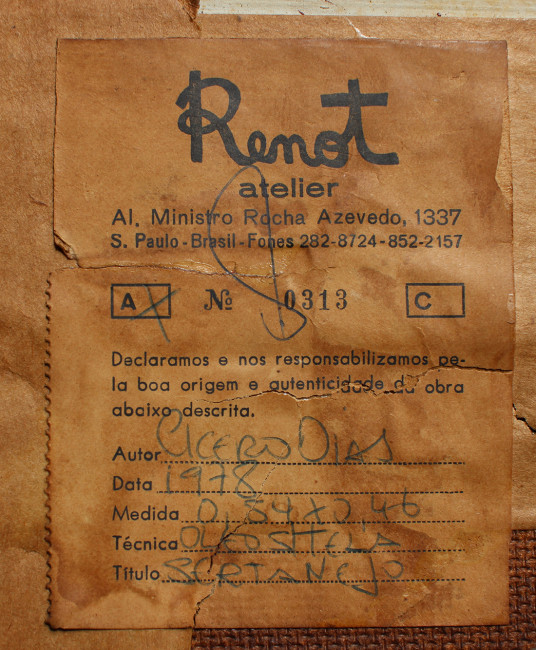 Renot
atelier
Al. Ministro Rocha Azevedo, 1337
S. Paulo - Brasil - Fones 282-8724 - 852-2157
A X Nº 0313 C
Declaramos e nos responsabilizamos pe-
la boa origem e autenticidade da obra
abaixo descrita.
Autor CICERO DIAS
Data 1978
Medida 0,54 x 0,46
Técnica OLEO S/TELA
Título SERTANEJO